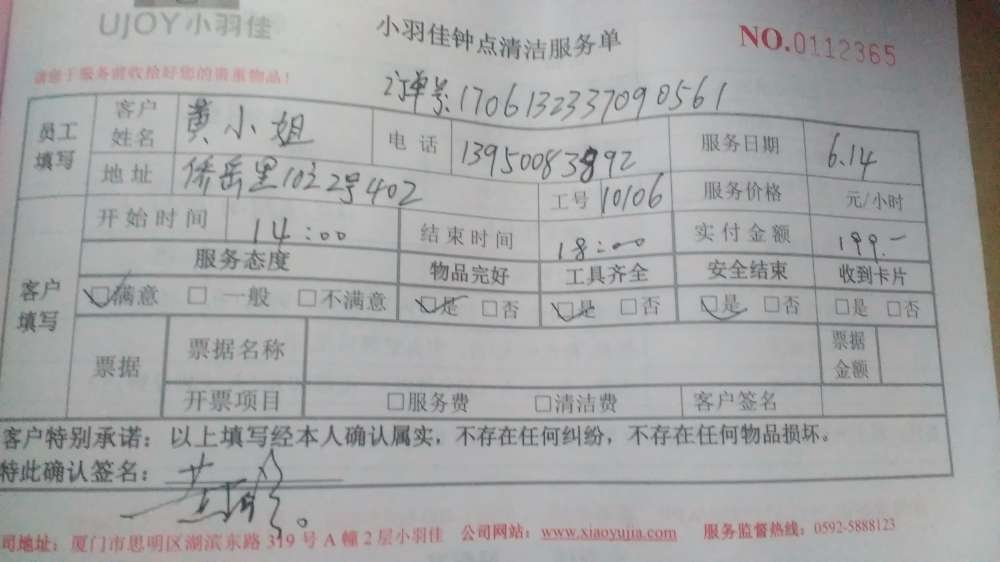 UJOY小羽佳
小羽佳钟点清洁服务单
NO.0112365
请您于服务前收拾好您的贵重物品!
订单号:1706132337090561
员工填写 客户姓名 黄小姐 电话 13950083892 服务日期 6.14
地址 侨岳里102号402 工号 10106 服务价格 元/小时
客户填写 开始时间 14:00 结束时间 18:00 实付金额 199.-
服务态度 物品完好 工具齐全 安全结束 收到卡片
☑满意 □一般 □不满意 ☑是 □否 ☑是 □否 ☑是 □否 □是 □否
票据 票据名称 票据金额
开票项目 □服务费 □清洁费 客户签名
客户特别承诺:以上填写经本人确认属实,不存在任何纠纷,不存在任何物品损坏。
特此确认签名:
司地址:厦门市思明区湖滨东路319号A幢2层小羽佳 公司网站:www.xiaoyujia.com 服务监督热线:0592-5888123